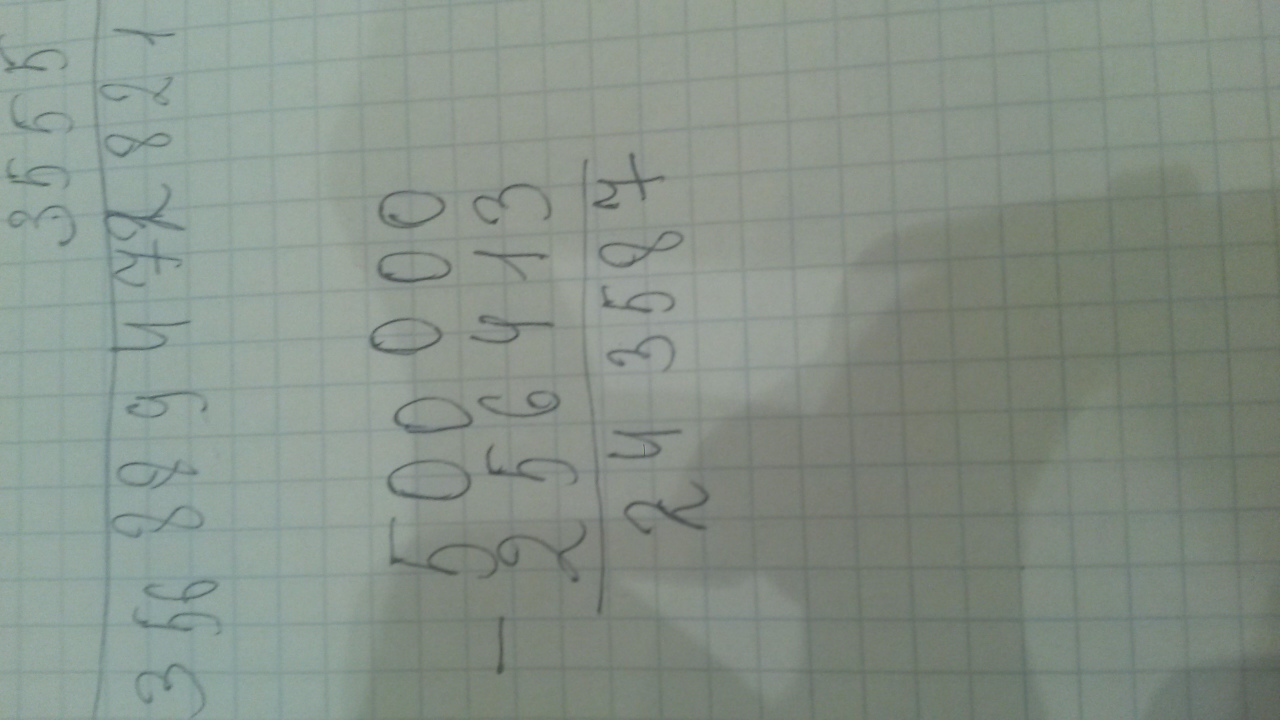 3555
356 889 472 821
500 000
- 256 413
24 3587